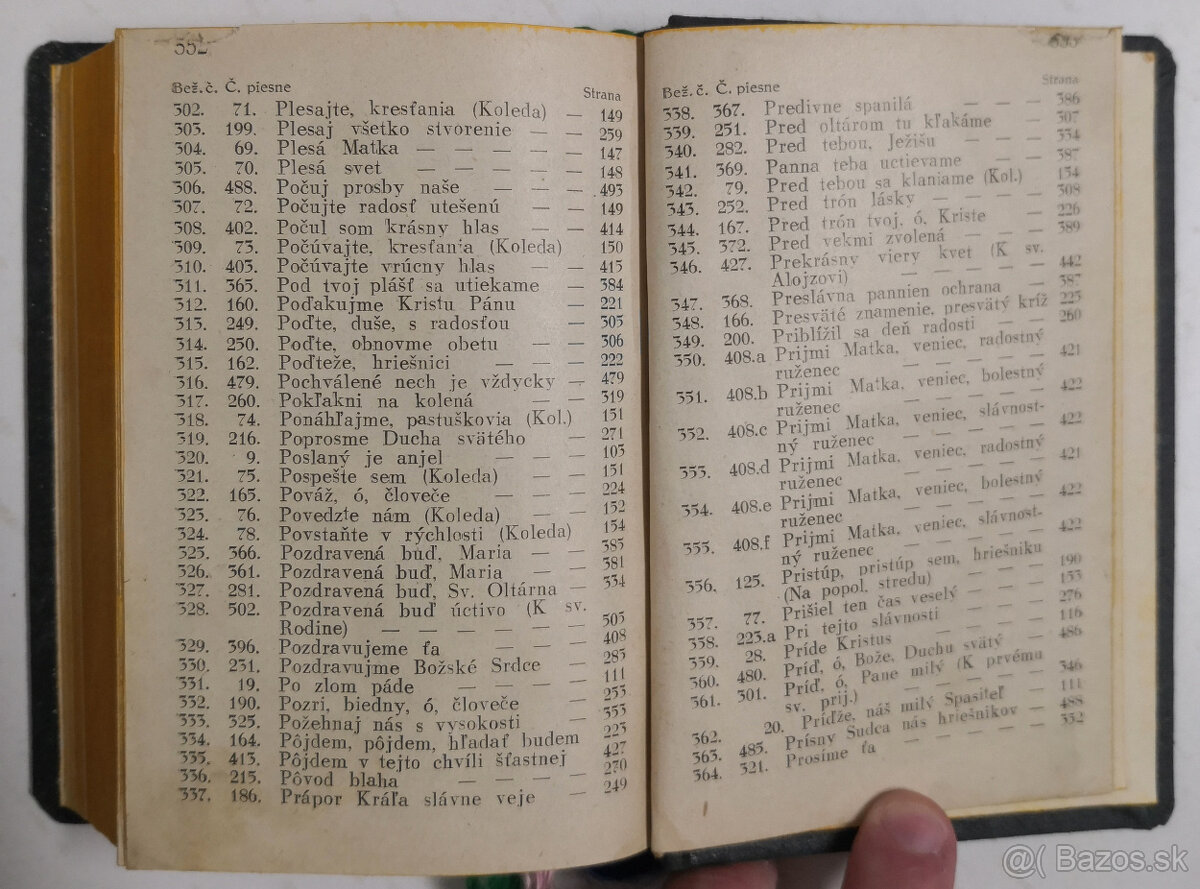 552
Bež. č. Č. piesne Strana
302. 71. Plesajte, kresťania (Koleda) — 149
303. 199. Plesaj všetko stvorenie — — 259
304. 69. Plesá Matka — — — — — 147
305. 70. Plesá svet — — — — — 148
306. 488. Počuj prosby naše — — — 493
307. 72. Počujte radosť utešenú — — 149
308. 402. Počul som krásny hlas — — 414
309. 73. Počúvajte, kresťania (Koleda) 150
310. 403. Počúvajte vrúcny hlas — — 415
311. 365. Pod tvoj plášť sa utiekame — 384
312. 160. Poďakujme Kristu Pánu — 221
313. 249. Poďte, duše, s radosťou — 305
314. 250. Poďte, obnovme obetu — — 306
315. 162. Poďteže, hriešnici — — — 222
316. 479. Pochválené nech je vždycky — 479
317. 260. Pokľakni na kolená — — 319
318. 74. Ponáhľajme, pastuškovia (Kol.) 151
319. 216. Poprosme Ducha svätého — 271
320. 9. Poslaný je anjel — — — 103
321. 75. Pospešte sem (Koleda) — — 151
322. 165. Považ, ó, človeče — — — 224
323. 76. Povedzte nám (Koleda) — — 152
324. 78. Povstaňte v rýchlosti (Koleda) 154
325. 366. Pozdravená buď, Maria — — 385
326. 361. Pozdravená buď, Maria — — 381
327. 281. Pozdravená buď, Sv. Oltárna — 334
328. 502. Pozdravená buď úctivo (K sv.
Rodine) — — — — — — 505
329. 396. Pozdravujeme ťa — — — 408
330. 231. Pozdravujme Božské Srdce — 283
331. 19. Po zlom páde — — — — 111
332. 190. Pozri, biedny, ó, človeče — 253
333. 325. Požehnaj nás s vysokosti — 353
334. 164. Pôjdem, pôjdem, hľadať budem 223
335. 413. Pôjdem v tejto chvíli šťastnej 427
336. 215. Pôvod blaha — — — — 270
337. 186. Prápor Kráľa slávne veje — 249
Bež. č. Č. piesne Strana
338. 367. Predivne spanilá — — — 386
339. 251. Pred oltárom tu kľakáme — 307
340. 282. Pred tebou, Ježišu — — 334
341. 369. Panna teba uctievame — — 387
342. 79. Pred tebou sa klaniame (Kol.) 154
343. 252. Pred trón lásky — — — 308
344. 167. Pred trón tvoj, ó, Kriste — 226
345. 372. Pred vekmi zvolená — — — 389
346. 427. Prekrásny viery kvet (K sv.
Alojzovi) — — — — — 442
347. 368. Preslávna pannien ochrana — 387
348. 166. Presväté znamenie, presvätý kríž 225
349. 200. Priblížil sa deň radosti — — 260
350. 408.a Prijmi Matka, veniec, radostný
ruženec — — — — — 421
351. 408.b Prijmi Matka, veniec, bolestný
ruženec — — — — — 422
352. 408.c Prijmi Matka, veniec, slávnost-
ný ruženec — — — — 422
353. 408.d Prijmi Matka, veniec, radostný
ruženec — — — — — 421
354. 408.e Prijmi Matka, veniec, bolestný
ruženec — — — — — 422
355. 408.f Prijmi Matka, veniec, slávnost-
ný ruženec — — — — 422
356. 125. Pristúp, pristup sem, hriešniku
(Na popol. stredu) — — — 190
357. 77. Prišiel ten čas veselý — — 153
358. 223.a Pri tejto slávnosti — — — 276
359. 28. Príde Kristus — — — — 116
360. 480. Príď, ó, Bože, Duchu svätý — 486
361. 301. Príď, ó, Pane milý (K prvému
sv. prij.) — — — — — 346
362. 20. Príďže, náš milý Spasiteľ — 111
363. 485. Prísny Sudca nás hriešnikov — 488
364. 321. Prosíme ťa — — — — 352
@( Bazos.sk